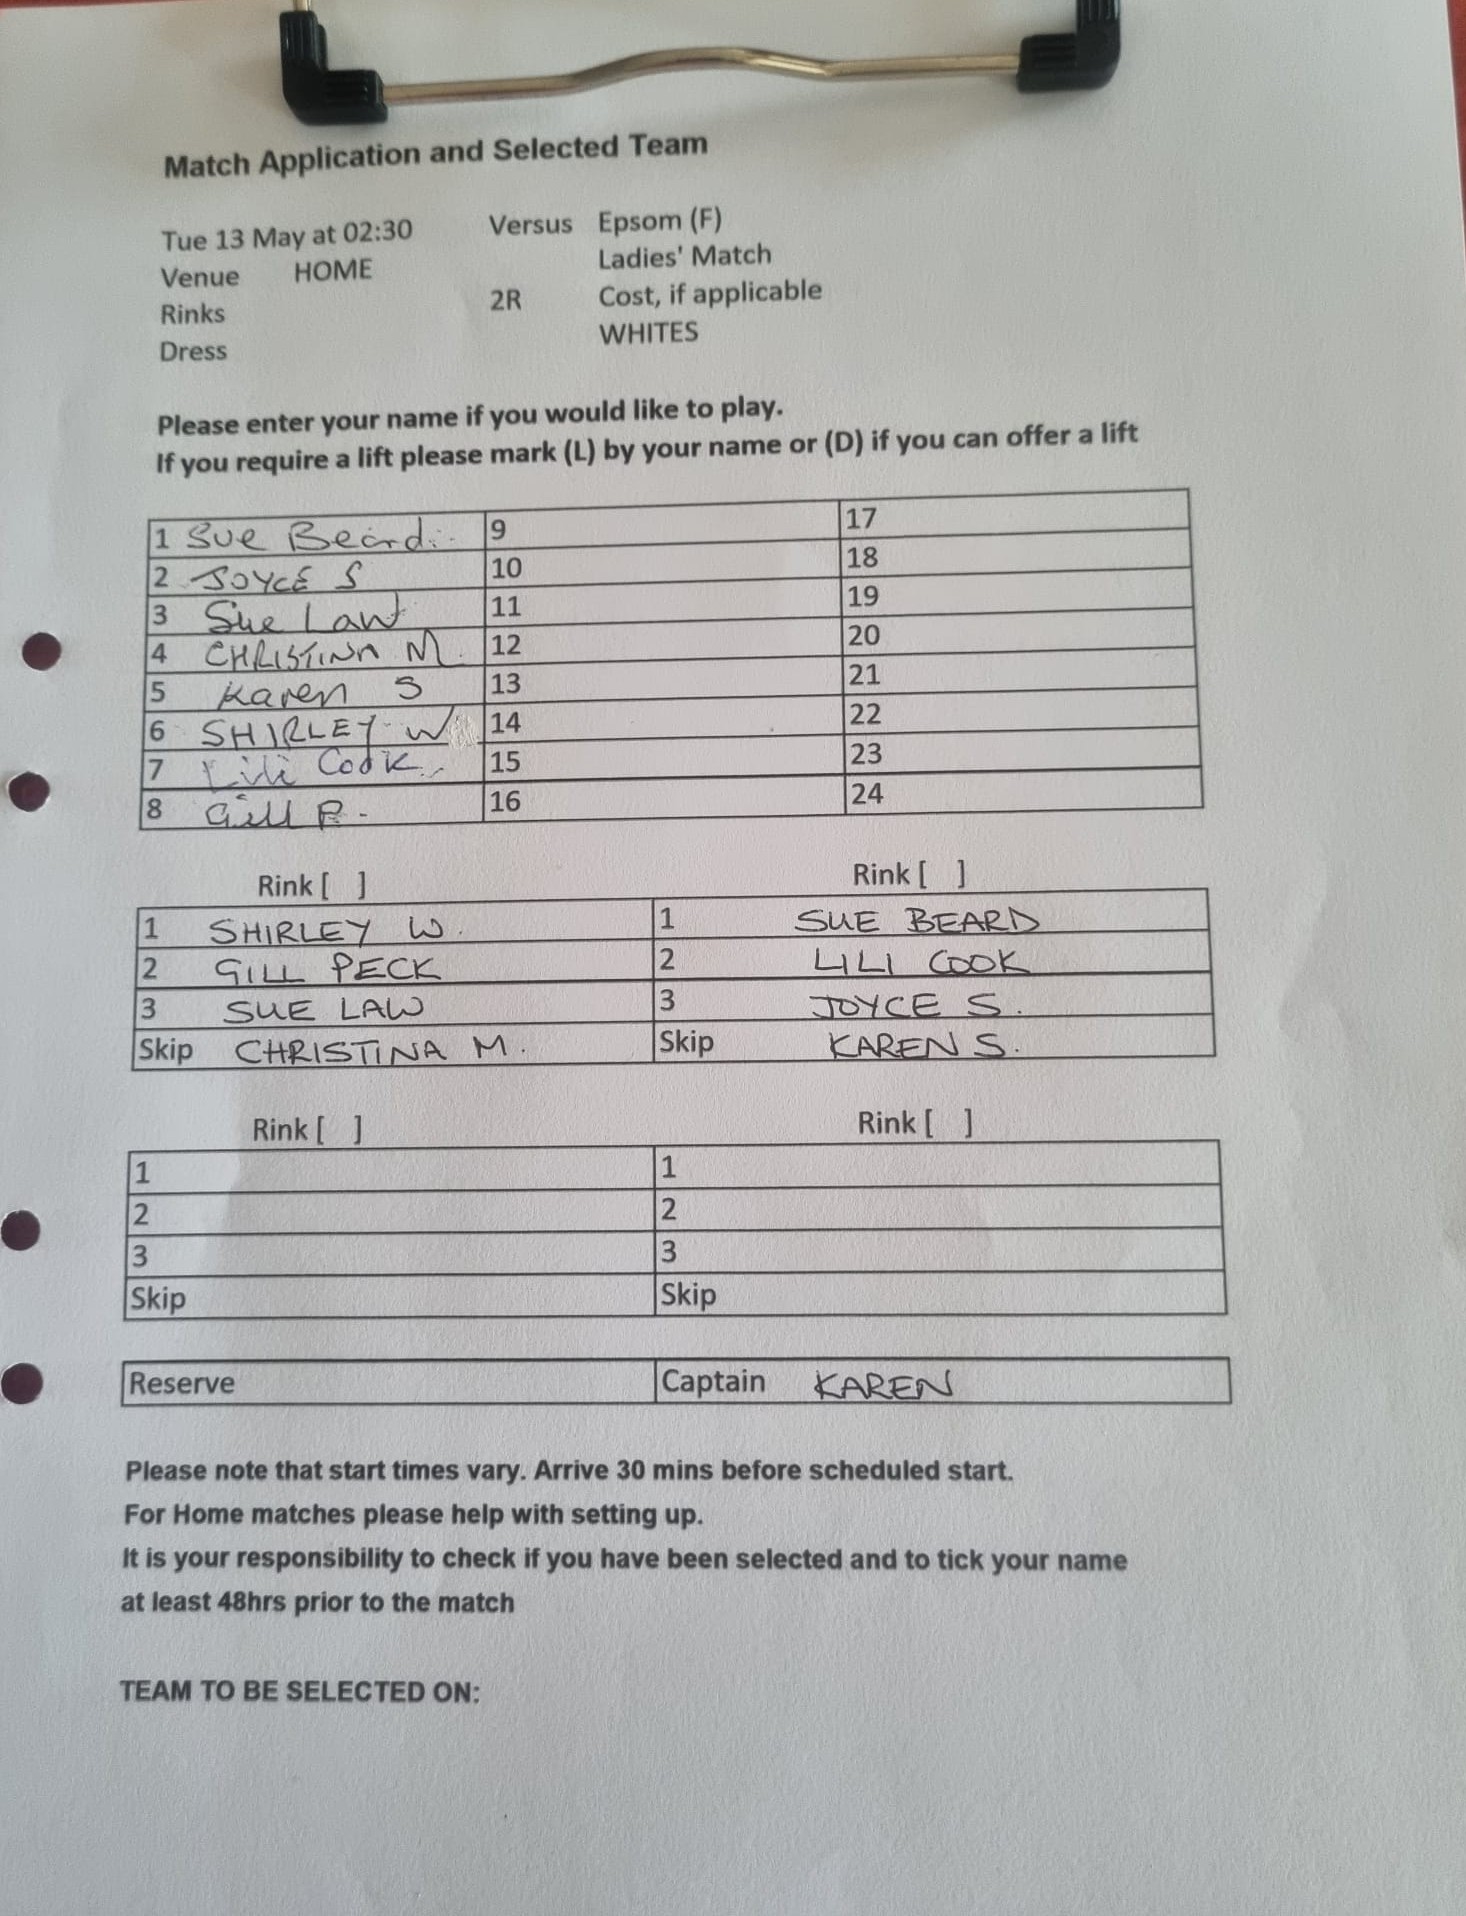 Match Application and Selected Team
Tue 13 May at 02:30 Versus Epsom (F)
Venue HOME Ladies' Match
Rinks 2R Cost, if applicable
Dress WHITES
Please enter your name if you would like to play.
If you require a lift please mark (L) by your name or (D) if you can offer a lift
1 Sue Beard. 9 17
2 JOYCE S 10 18
3 Sue Law 11 19
4 CHRISTINA M. 12 20
5 Karen S 13 21
6 SHIRLEY W 14 22
7 Lili Cook 15 23
8 Gill P. 16 24
Rink [ ] Rink [ ]
1 SHIRLEY W. 1 SUE BEARD
2 GILL PECK 2 LILI COOK
3 SUE LAW 3 JOYCE S.
Skip CHRISTINA M. Skip KAREN S.
Rink [ ] Rink [ ]
1 1
2 2
3 3
Skip Skip
Reserve Captain KAREN
Please note that start times vary. Arrive 30 mins before scheduled start.
For Home matches please help with setting up.
It is your responsibility to check if you have been selected and to tick your name
at least 48hrs prior to the match
TEAM TO BE SELECTED ON: